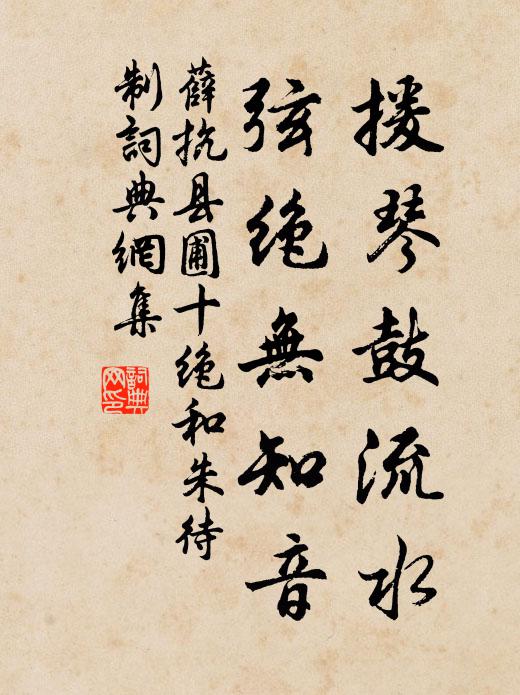 援琴鼓流水
弦绝無知音
薛抗县圃十绝和朱待
制詞典網集
詞典網印